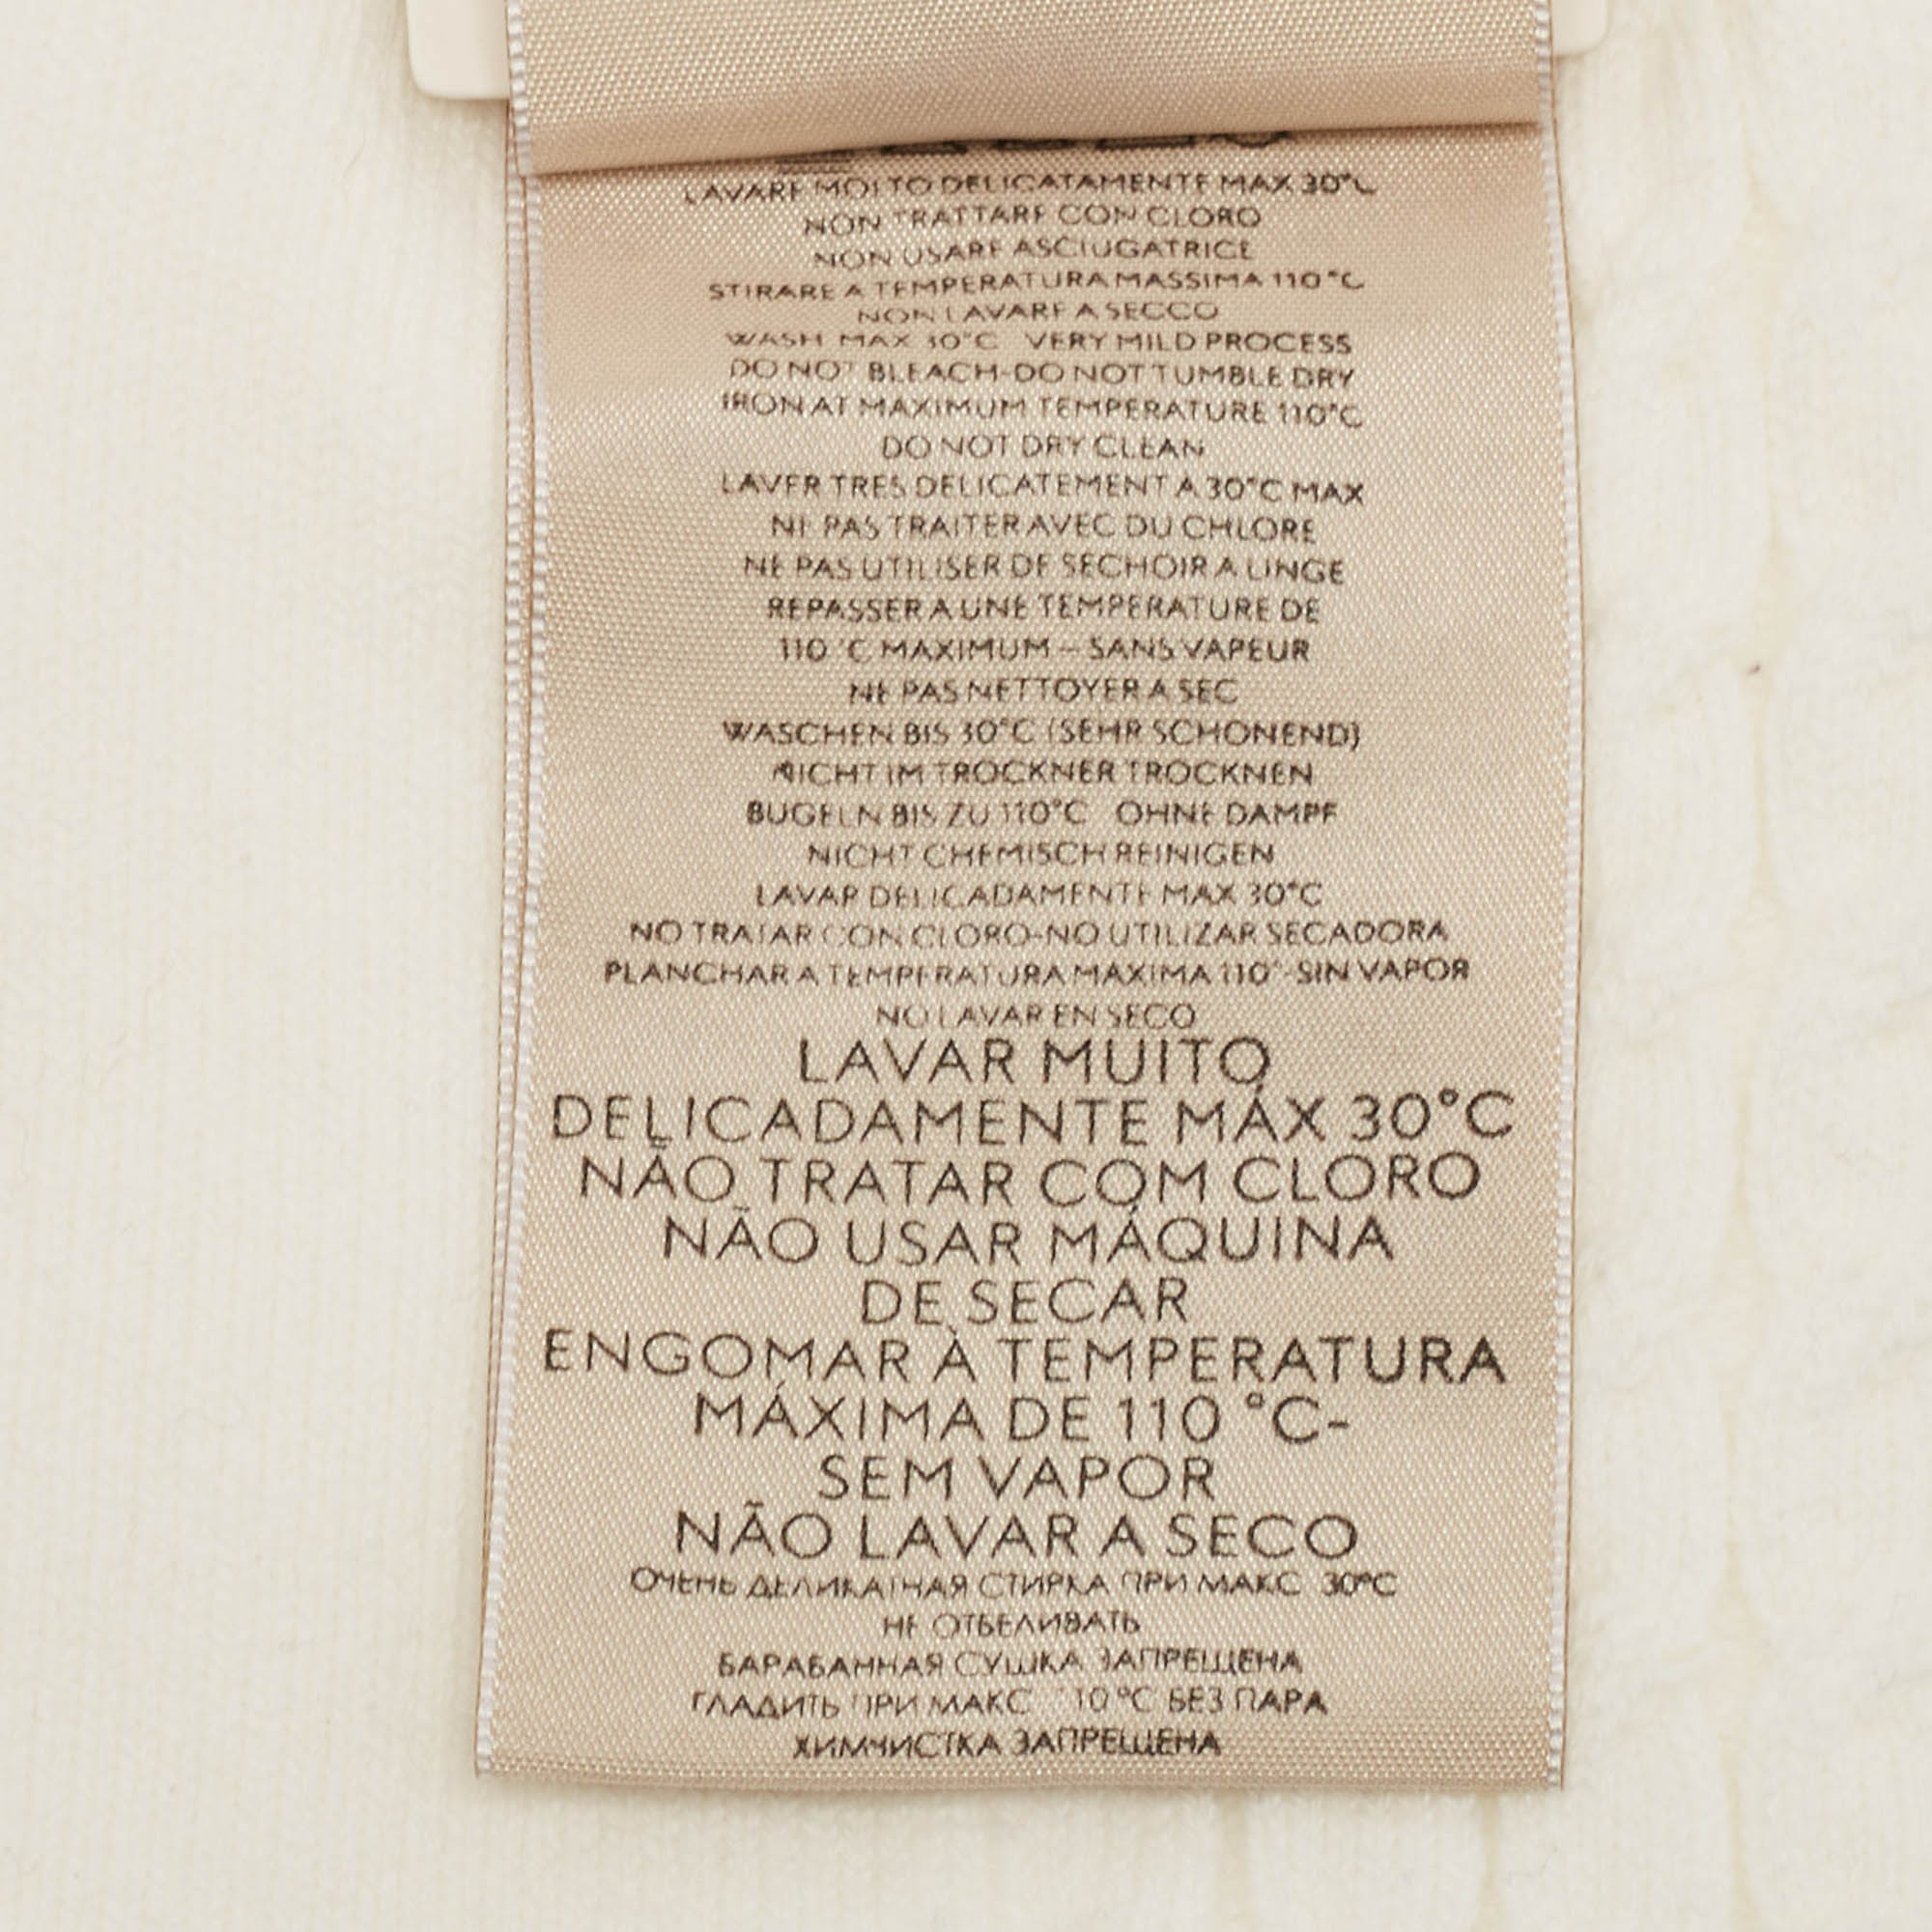 LAVARE MOLTO DELICATAMENTE MAX 30°C
NON TRATTARE CON CLORO
NON USARE ASCIUGATRICE
STIRARE A TEMPERATURA MASSIMA 110°C
NON LAVARE A SECCO
WASH MAX 30°C VERY MILD PROCESS
DO NOT BLEACH-DO NOT TUMBLE DRY
IRON AT MAXIMUM TEMPERATURE 110°C
DO NOT DRY CLEAN
LAVER TRES DELICATEMENT A 30°C MAX
NE PAS TRAITER AVEC DU CHLORE
NE PAS UTILISER DE SECHOIR A LINGE
REPASSER A UNE TEMPERATURE DE
110°C MAXIMUM – SANS VAPEUR
NE PAS NETTOYER A SEC
WASCHEN BIS 30°C (SEHR SCHONEND)
NICHT IM TROCKNER TROCKNEN
BUGELN BIS ZU 110°C OHNE DAMPF
NICHT CHEMISCH REINIGEN
LAVAR DELICADAMENTE MAX 30°C
NO TRATAR CON CLORO-NO UTILIZAR SECADORA
PLANCHAR A TEMPERATURA MAXIMA 110°-SIN VAPOR
NO LAVAR EN SECO
LAVAR MUITO
DELICADAMENTE MÁX 30°C
NÃO TRATAR COM CLORO
NÃO USAR MÁQUINA
DE SECAR
ENGOMAR À TEMPERATURA
MÁXIMA DE 110 °C-
SEM VAPOR
NÃO LAVAR A SECO
ОЧЕНЬ ДЕЛИКАТНАЯ СТИРКА ПРИ МАКС 30°C
НЕ ОТБЕЛИВАТЬ
БАРАБАННАЯ СУШКА ЗАПРЕЩЕНА
ГЛАДИТЬ ПРИ МАКС 110°C БЕЗ ПАРА
ХИМЧИСТКА ЗАПРЕЩЕНА